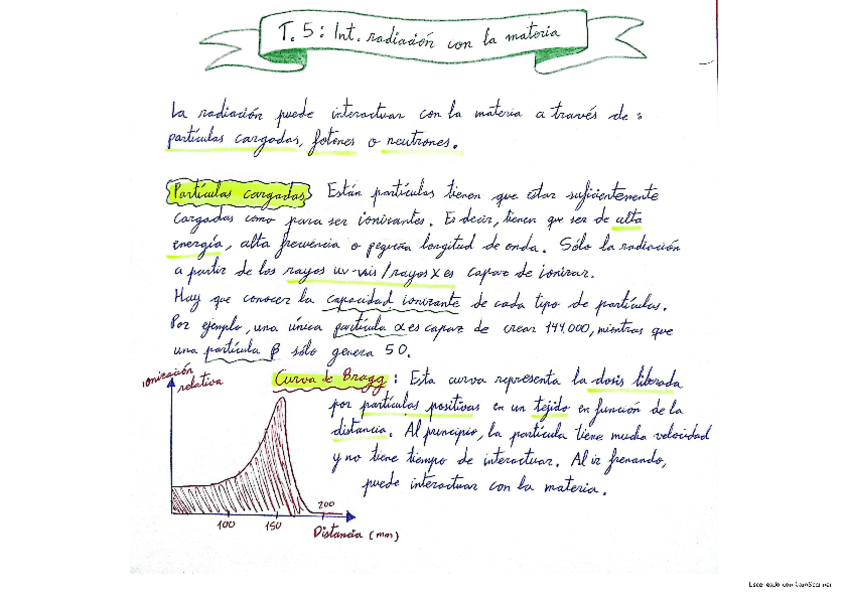 T. 5: Int. radiación con la materia
La radiación puede interactuar con la materia a través de:
partículas cargadas, fotones o neutrones.
Partículas cargadas Están partículas tienen que estar suficientemente
cargadas como para ser ionizantes. Es decir, tienen que ser de alta
energía, alta frecuencia o pequeña longitud de onda. Sólo la radiación
a partir de los rayos uv-vis/rayos X es capaz de ionizar.
Hay que conocer la capacidad ionizante de cada tipo de partículas.
Por ejemplo, una única partícula α es capaz de crear 144.000, mientras que
una partícula β sólo genera 50.
ionización
relativa
Curva de Bragg: Esta curva representa la dosis liberada
por partículas positivas en un tejido en función de la
distancia. Al principio, la partícula tiene mucha velocidad
y no tiene tiempo de interactuar. Al ir frenando,
puede interactuar con la materia.
100 150 200
Distancia (mm)
Escaneado con CamScanner